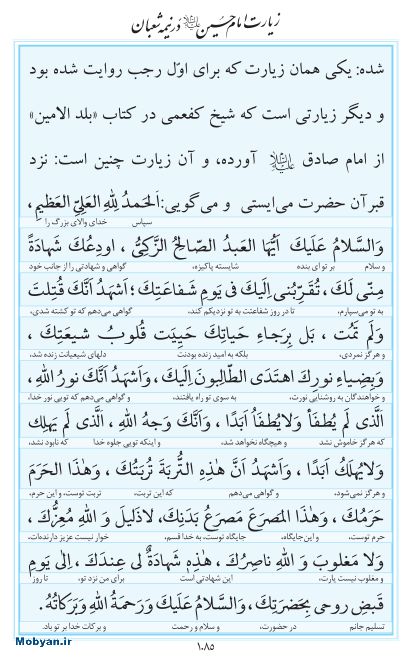 زیارت امام حسین علیه‌السلام در نیمه شعبان
شده: یکی همان زیارت که برای اوّل رجب روایت شده بود
و دیگر زیارتی است که شیخ کفعمی در کتاب «بلد الامین»
از امام صادق علیه‌السلام آورده، و آن زیارت چنین است: نزد
قبر آن حضرت می‌ایستی و می‌گویی: اَلحَمدُ لِلّٰهِ العَلِیِّ العَظیمِ ،
سپاس خدای والای بزرگ را
وَالسَّلامُ عَلَیكَ اَیُّهَا العَبدُ الصّالِحُ الزَّکِیُّ ، اودِعُكَ شَهادَةً
و سلام بر تو ای بنده شایسته پاکیزه، گواهی و شهادتی را از جانب خود
مِنّی لَكَ ، تُقَرِّبُنی اِلَیكَ فی یَومِ شَفاعَتِكَ؛ اَشهَدُ اَنَّكَ قُتِلتَ
به تو می‌سپارم، تا در روز شفاعتت به تو نزدیکم کند، گواهی می‌دهم که تو کشته شدی،
وَلَم تَمُت ، بَل بِرَجاءِ حَیاتِكَ حَیِیَت قُلوبُ شیعَتِكَ ،
و هرگز نمردی، بلکه به امید زنده بودنت دلهای شیعیانت زنده شد،
وَبِضِیاءِ نورِكَ اهتَدَی الطّالِبونَ اِلَیكَ، وَاَشهَدُ اَنَّكَ نورُ اللهِ،
و خواهندگان به روشنایی نورت، به سوی تو راه یافتند، و گواهی می‌دهم که تویی نور خدا،
اَلَّذی لَم یُطفَأ وَلایُطفَأُ اَبَدًا ، وَاَنَّكَ وَجهُ اللهِ ، اَلَّذی لَم یَهلِك
که هرگز خاموش نشد و هیچگاه نخواهد شد، و اینکه تویی جلوه خدا که نابود نشد،
وَلایُهلَكُ اَبَدًا ، وَاَشهَدُ اَنَّ هٰذِهِ التُّربَةَ تُربَتُكَ ، وَهٰذَا الحَرَمَ
و هرگز نمی‌شود، و گواهی می‌دهم که این تربت، تربت توست، و این حرم،
حَرَمُكَ ، وَهٰذَا المَصرَعَ مَصرَعُ بَدَنِكَ، لاذَلیلَ وَ اللهِ مُعِزُّكَ ،
حرم توست، و این جایگاه، جایگاه توست، به خدا قسم، خوار نیست عزیز دارنده‌ات،
وَلا مَغلوبَ وَ اللهِ ناصِرُكَ ، هٰذِهِ شَهادَةٌ لی عِندَكَ ، اِلیٰ یَومِ
و مغلوب نیست یارت، این شهادتی است برای من نزد تو، تا روز
قَبضِ روحی بِحَضرَتِكَ، وَالسَّلامُ عَلَیكَ وَرَحمَةُ اللهِ وَبَرَکاتُهُ.
تسلیم جانم در حضورت، و سلام و رحمت و برکات خدا بر تو باد.
۱۰۸۵
Mobyan.ir